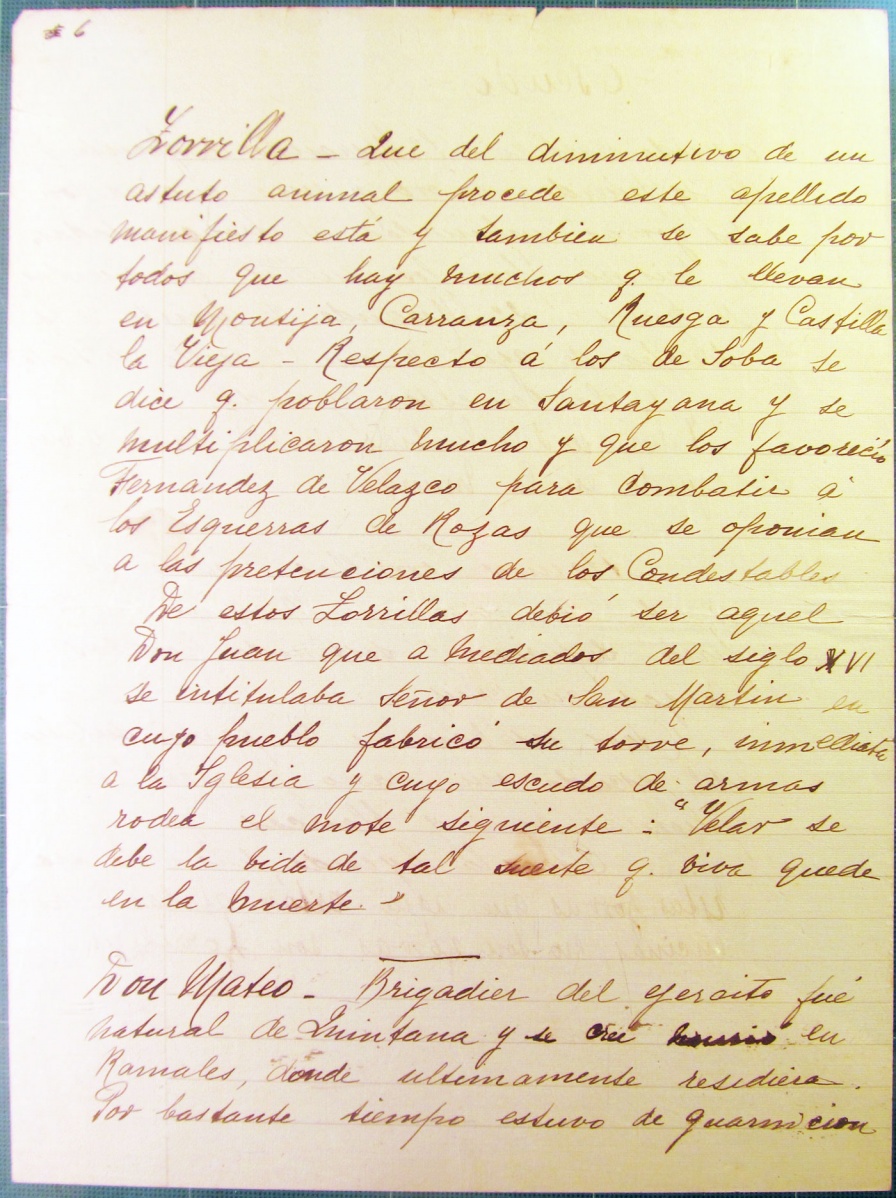 6
Zorrilla - Que del diminutivo de un
astuto animal procede este apellido
manifiesto está y tambien se sabe por
todos que hay muchos q. le llevan
en Montija, Carranza, Ruesga y Castilla
la Vieja - Respecto á los de Soba se
dice q. poblaron en Santayana y se
multiplicaron mucho y que los favoreció
Fernandez de Velazco para combatir á
los Esguerras de Rozas que se oponian
a las pretenciones de los Condestables
De estos Zorrillas debió ser aquel
Don Juan que a mediados del siglo XVI
se intitulaba Señor de San Martin en
cuyo pueblo fabricó su torre, inmediata
a la Iglesia y cuyo escudo de armas
rodea el mote siguiente: "Velar se
debe la vida de tal suerte q. viva quede
en la muerte."
Don Mateo - Brigadier del ejercito fué
natural de Quintana y se creé en
Ramales, donde ultimamente residiera.
Por bastante tiempo estuvo de guarnicion